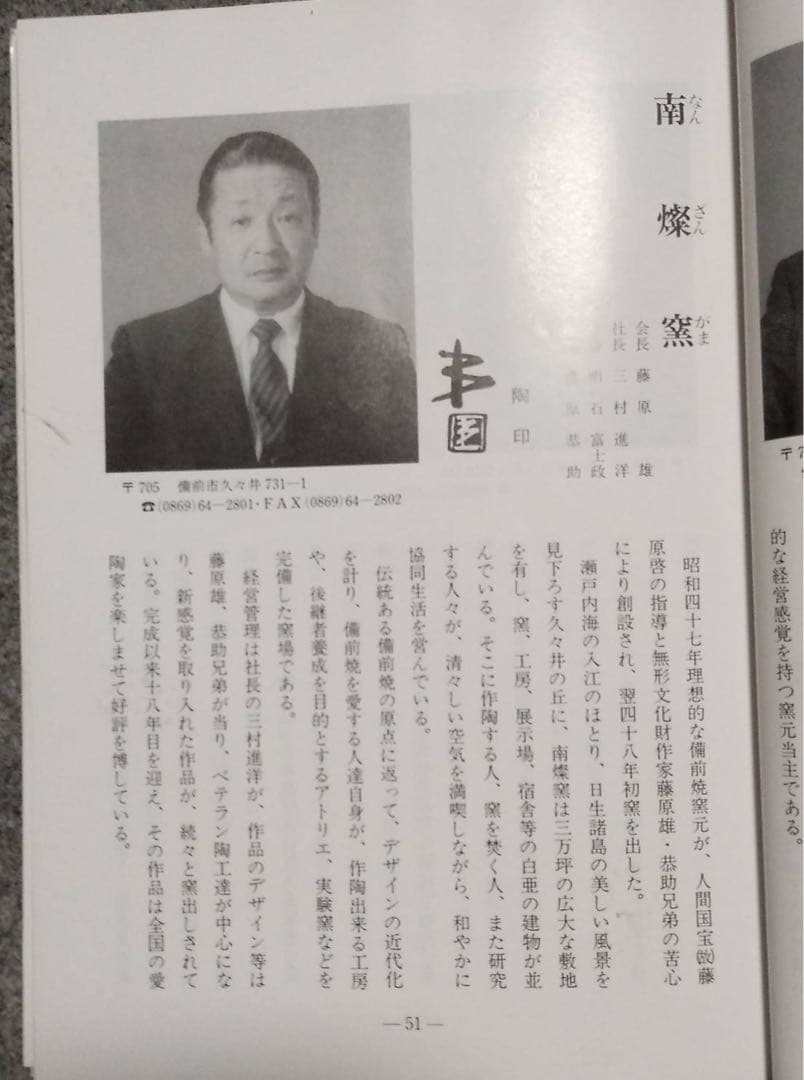 南燦窯
なんざんがま
会長 藤原 雄
社長 三村進洋
石 富士政
原 恭助
陶印
〒705 備前市久々井731―1
☎(0869)64―2801・FAX(0869)64―2802
昭和四十七年理想的な備前焼窯元が、人間国宝㈶藤
原啓の指導と無形文化財作家藤原雄・恭助兄弟の苦心
により創設され、翌四十八年初窯を出した。
瀬戸内海の入江のほとり、日生諸島の美しい風景を
見下ろす久々井の丘に、南燦窯は三万坪の広大な敷地
を有し、窯、工房、展示場、宿舎等の白亜の建物が並
んでいる。そこに作陶する人、窯を焚く人、また研究
する人々が、清々しい空気を満喫しながら、和やかに
協同生活を営んでいる。
伝統ある備前焼の原点に返って、デザインの近代化
を計り、備前焼を愛する人達自身が、作陶出来る工房
や、後継者養成を目的とするアトリエ、実験窯などを
完備した窯場である。
経営管理は社長の三村進洋が、作品のデザイン等は
藤原雄、恭助兄弟が当り、ベテラン陶工達が中心にな
り、新感覚を取り入れた作品が、続々と窯出しされて
いる。完成以来十八年目を迎え、その作品は全国の愛
陶家を楽しませて好評を博している。
―51―
〒7
的な経営感覚を持つ窯元当主である。